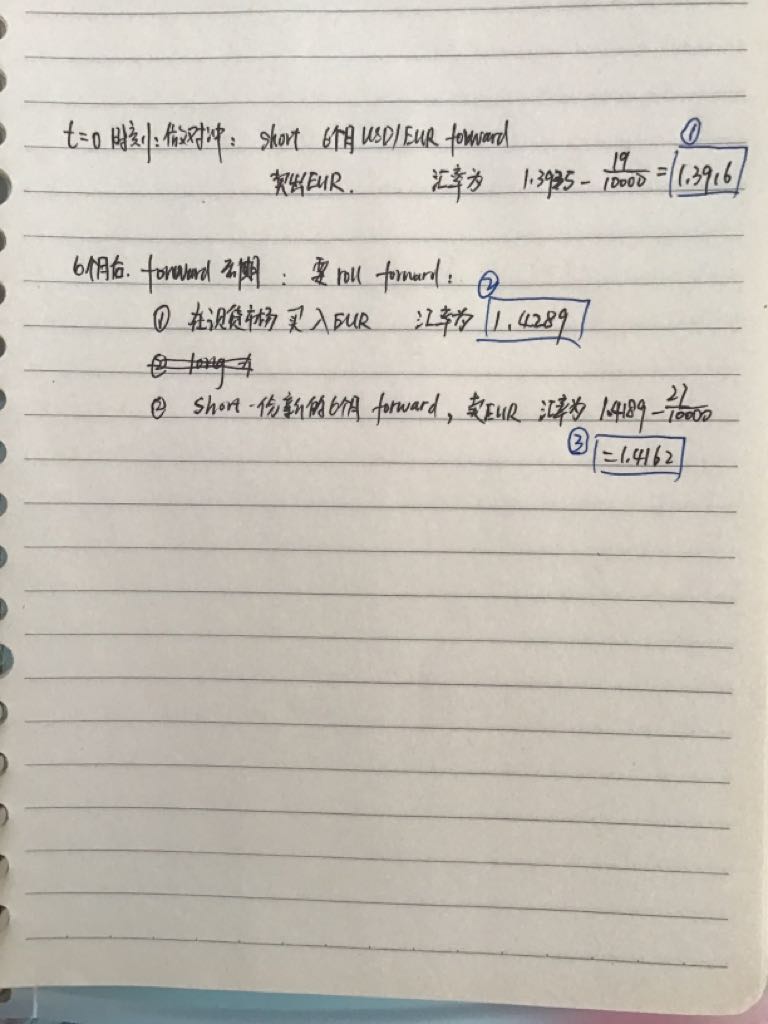 ①
t=0时刻:做对冲: short 6个月USD/EUR forward
卖出EUR. 汇率为 1.3935 - 19/10000 = 1.3916
6个月后. forward 到期: 要 roll forward:
②
① 在现货市场买入EUR 汇率为 1.4289
② long
② short 一份新的6个月 forward, 卖EUR 汇率为 1.4189 - 27/10000
③ =1.4162